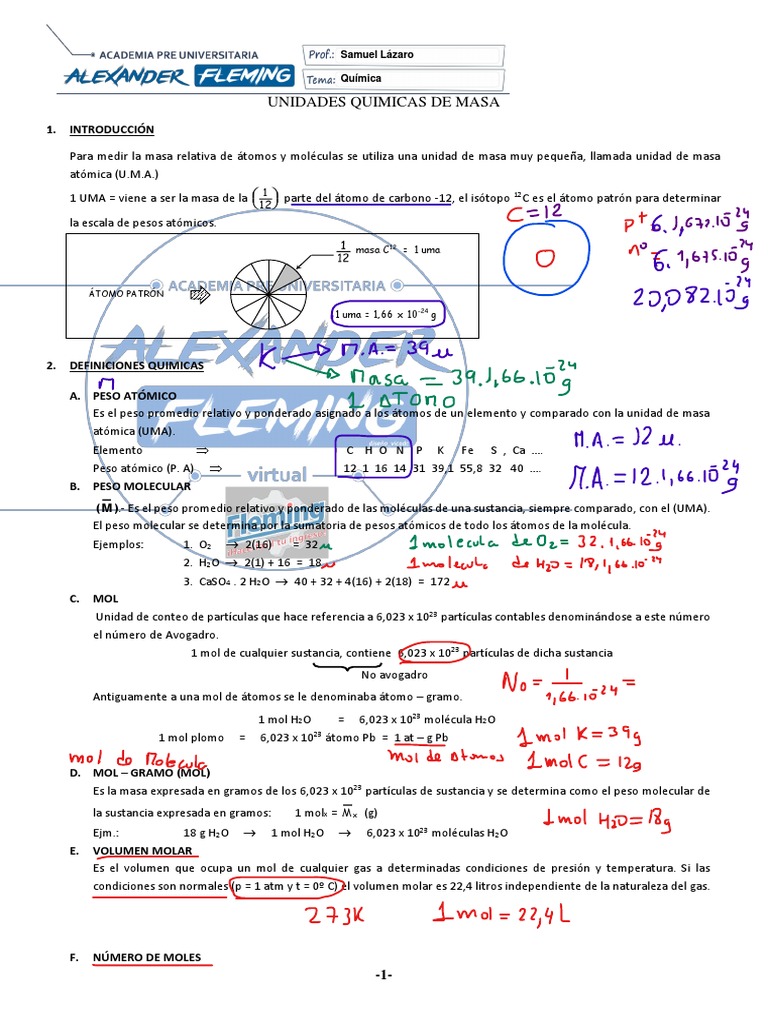 ACADEMIA PRE UNIVERSITARIA
ALEXANDER FLEMING
Prof.: Samuel Lázaro
Tema: Química
UNIDADES QUIMICAS DE MASA
1. INTRODUCCIÓN
Para medir la masa relativa de átomos y moléculas se utiliza una unidad de masa muy pequeña, llamada unidad de masa
atómica (U.M.A.)
1 UMA = viene a ser la masa de la (1/12) parte del átomo de carbono -12, el isótopo ¹²C es el átomo patrón para determinar
la escala de pesos atómicos.
C = 12
p⁺ 6. 1,672.10⁻²⁴ g
n° 6. 1,675.10⁻²⁴ g
20,082.10⁻²⁴ g
1/12 masa C¹² = 1 uma
ACADEMIA PRE UNIVERSITARIA
ÁTOMO PATRÓN
1 uma = 1,66 x 10⁻²⁴ g
ALEXANDER
FLEMING
virtual
Fleming
K → M.A. = 39 u
Masa 1 ATOMO = 39.1,66.10⁻²⁴ g
2. DEFINICIONES QUIMICAS
M
A. PESO ATÓMICO
Es el peso promedio relativo y ponderado asignado a los átomos de un elemento y comparado con la unidad de masa
atómica (UMA).
Elemento ⇒ C H O N P K Fe S , Ca ....
Peso atómico (P. A) ⇒ 12 1 16 14 31 39,1 55,8 32 40 ....
M.A. = 12 u.
M.A. = 12.1,66.10⁻²⁴ g
B. PESO MOLECULAR
(M̅).- Es el peso promedio relativo y ponderado de las moléculas de una sustancia, siempre comparado, con el (UMA).
El peso molecular se determina por la sumatoria de pesos atómicos de todo los átomos de la molécula.
Ejemplos: 1. O₂ → 2(16) = 32 u
1 molecula de O₂ = 32. 1,66.10⁻²⁴ g
2. H₂O → 2(1) + 16 = 18 u
1 molecula de H₂O = 18, 1,66.10⁻²⁴ g
3. CaSO₄ . 2 H₂O → 40 + 32 + 4(16) + 2(18) = 172 u
C. MOL
Unidad de conteo de partículas que hace referencia a 6,023 x 10²³ partículas contables denominándose a este número
el número de Avogadro.
1 mol de cualquier sustancia, contiene 6,023 x 10²³ partículas de dicha sustancia
No avogadro
No = 1/1,66.10⁻²⁴ =
Antiguamente a una mol de átomos se le denominaba átomo – gramo.
1 mol H₂O = 6,023 x 10²³ molécula H₂O
1 mol plomo = 6,023 x 10²³ átomo Pb = 1 at – g Pb
1 mol K = 39g
mol de Molecula
mol de Atomos
1 mol C = 12g
D. MOL – GRAMO (MOL)
Es la masa expresada en gramos de los 6,023 x 10²³ partículas de sustancia y se determina como el peso molecular de
la sustancia expresada en gramos: 1 molₓ = M̅ₓ (g)
1 mol H₂O = 18g
Ejm.: 18 g H₂O → 1 mol H₂O → 6,023 x 10²³ moléculas H₂O
E. VOLUMEN MOLAR
Es el volumen que ocupa un mol de cualquier gas a determinadas condiciones de presión y temperatura. Si las
condiciones son normales (p = 1 atm y t = 0º C) el volumen molar es 22,4 litros independente de la naturaleza del gas.
273K
1 mol = 22,4 L
F. NÚMERO DE MOLES
-1-